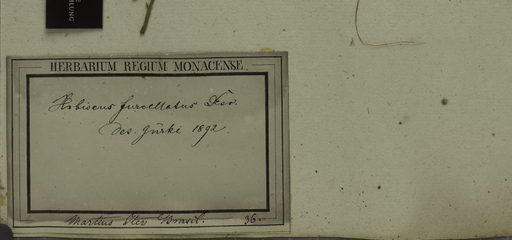 MLUNG
HERBARIUM REGIUM MONACENSE.
Hibiscus furcellatus Desr.
des. Gürke 1892.
Martius Iter Brasil. 36.